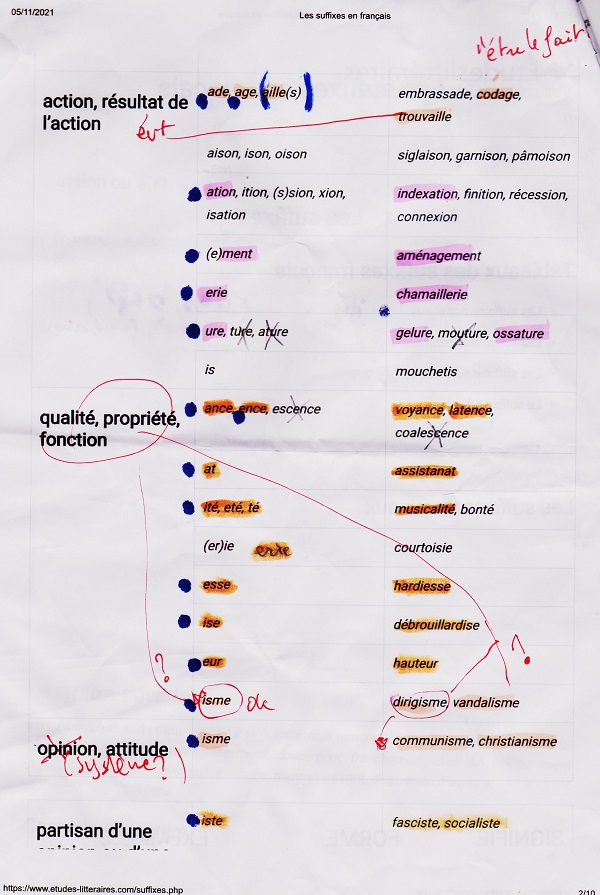 05/11/2021
Les suffixes en français
l'être le fait
action, résultat de
l'action
évt
ade, age, aille(s)
embrassade, codage,
trouvaille
aison, ison, oison
siglaison, garnison, pâmoison
ation, ition, (s)sion, xion,
isation
indexation, finition, récession,
connexion
(e)ment
aménagement
erie
chamaillerie
ure, ture, ature
gelure, mouture, ossature
is
mouchetis
qualité, propriété,
fonction
ance, ence, escence
voyance, latence,
coalescence
at
assistanat
ité, eté, té
musicalité, bonté
(er)ie
erie
courtoisie
esse
hardiesse
ise
débrouillardise
eur
hauteur
?
?
isme
ok
dirigisme, vandalisme
opinion, attitude
(système?)
isme
communisme, christianisme
partisan d'une
iste
fasciste, socialiste
https://www.etudes-litteraires.com/suffixes.php
2/10